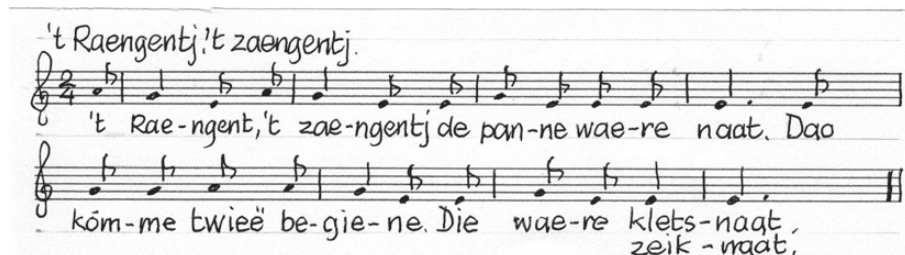 't Raengentj, 't zaengentj.
't Rae-ngent, 't zae-ngentj de pan-ne wae-re naat. Dao
kóm-me twieë be-gie-ne. Die wae-re klets-naat,
zeik-naat,